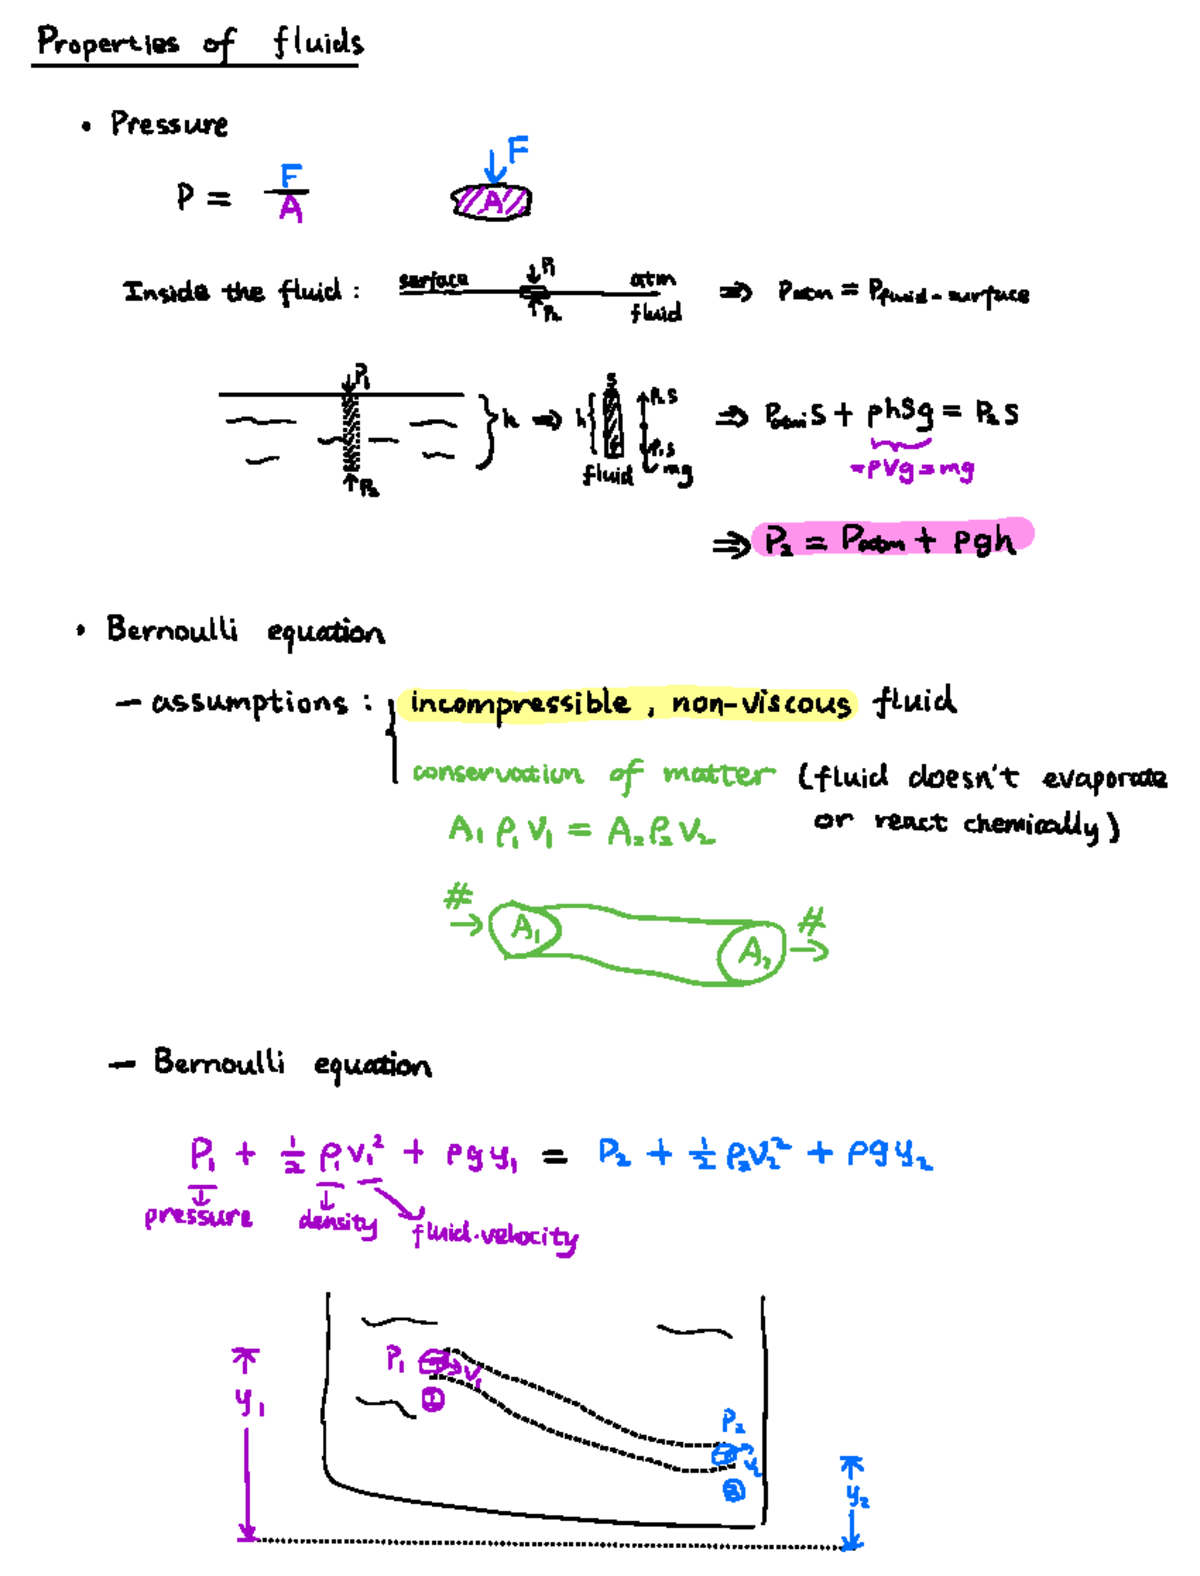 Properties of fluids
• Pressure
P = F/A
F
A
Inside the fluid : surface P₁ atm ⇒ Patm = Pfluid-surface
P₂ fluid
P₁
h ⇒ h S P₂S ⇒ Patm·S + ρhSg = P₂S
P₁S
P₂ fluid mg =ρVg = mg
⇒ P₂ = Patm + ρgh
• Bernoulli equation
— assumptions : incompressible, non-viscous fluid
conservation of matter (fluid doesn't evaporate
or react chemically)
A₁ρ₁V₁ = A₂ρ₂V₂
# →
A₁ A₂
# →
— Bernoulli equation
P₁ + ½ρ₁v₁² + ρgy₁ = P₂ + ½ρ₂v₂² + ρgy₂
pressure density fluid-velocity
P₁ v₁
①
y₁
P₂
v₂
②
y₂